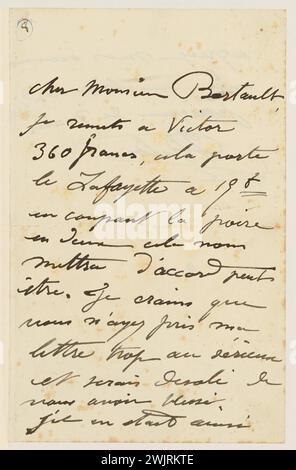 cher Monsieur Bertault,
je remets a Victor
360 francs, cela porte
le Lafayette a 19f
en coupant la poire
en deux cela nous
mettra d'accord peut
être. Je crains que
vous n'ayez pris ma
lettre trop au sérieux
et serais desolé de
vous avoir blessé
s'il en etait ainsi
alamy
Image ID: 2WJRKTE
www.alamy.com